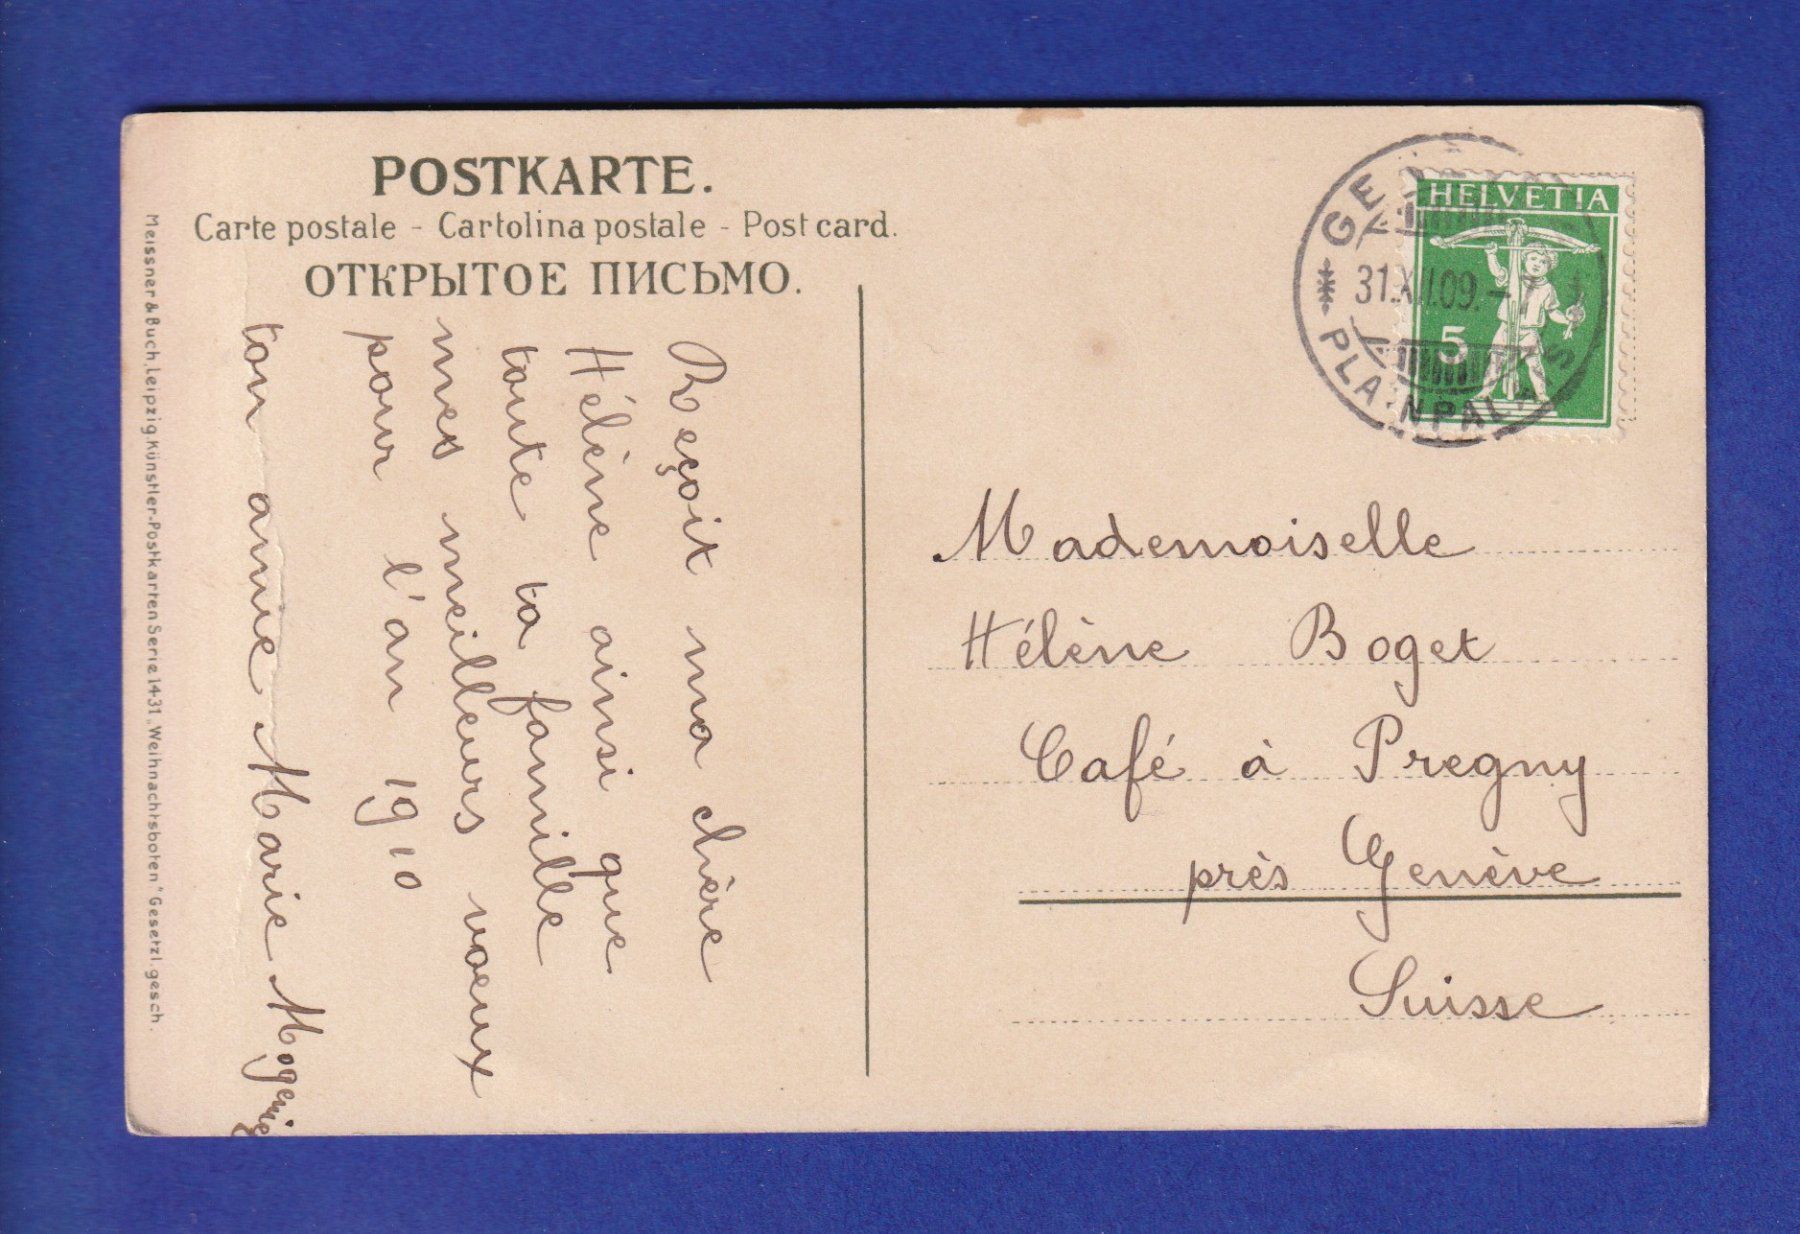 POSTKARTE.
Carte postale - Cartolina postale - Post card.
ОТКРЫТОЕ ПИСЬМО.
Meissner & Buch, Leipzig, Künstler-Postkarten Serie 1431 „Weihnachtsboten" Gesetzl. gesch.
Reçoit ma chère
Hélène ainsi que
toute ta famille
mes meilleurs voeux
pour l'an 1910
ton amie Marie
HELVETIA
5
31.XII.09.-
PLAINPALAIS
Mademoiselle
Hélène Boget
Café à Pregny
près Genève
Suisse